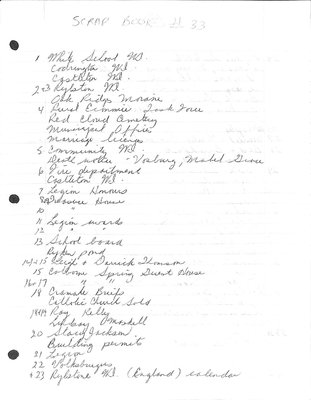 SCRAP BOOK # 33
1 White School W.I.
Codrington W.I.
Castleton W.I.
2+3 Rylston W.I.
Oak Ridges Moraine
4 Rural Economic Task Force
Red Cloud Cemetery
Municipal Offices
Marriage licenses
5 Community W.I.
Death notice - Vosburg, Mabel
6 Fire department
Castleton W.I.
7 Legion Honours
House
10 "
11 Legion awards
12 " "
13 School board
pond
14+15 + Derrick Thomson
15 Colborne Spring House
16+17 " "
18 Cramahe Briefs
Catholic Church Sold
18+19 Roy Kelly
Lindsay
20 Stacy Jackson
Building permits
21 Legion
22 Volksbugus
+23 Rylstone W.I. (England) calendar